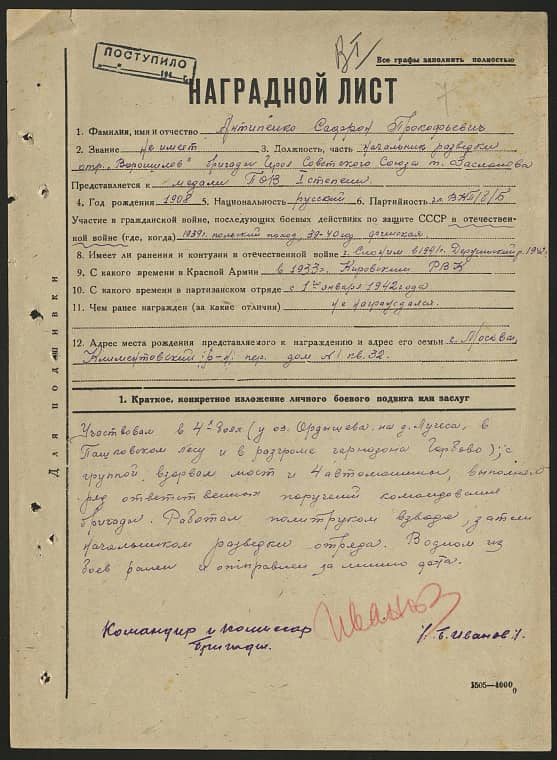 ПОСТУПИЛО
194 г.
ВТ
Все графы заполнить полностью
НАГРАДНОЙ ЛИСТ
1. Фамилия, имя и отчество Антипенко Сафрон Прокофьевич
2. Звание не имеет 3. Должность, часть начальник разведки
отр. "Ворошилов" бригады Героя Советского Союза т. Заслонова
Представляется к медали ПОВ I степени
4. Год рождения 1908 5. Национальность русский 6. Партийность
Участие в гражданской войне, последующих боевых действиях по защите СССР и отечествен-
ной войне (где, когда) 1939г. польский поход, 39-40 год финская.
8. Имеет ли ранения и контузии в отечественной войне г. Слоним в 1941г. 1942
9. С какого времени в Красной Армии в 1933г. Кировским РВК
10. С какого времени в партизанском отряде с 1го января 1942 года
11. Чем ранее награжден (за какие отличия) не награждался.
12. Адрес места рождения представляемого к награждению и адрес его семьи г. Москва,
Климентовский р-н, пер. дом №1 кв. 32.
1. Краткое, конкретное изложение личного боевого подвига или заслуг
Участвовал в 4х боях (у оз. Ордышева на д. Лучеса, в
Пашковском лесу и в разгроме гарнизона Горбово); с
группой взорвал мост и 4 автомашины, выполнял
ряд ответственных поручений командования
бригады. Работал политруком взвода, затем
начальником разведки отряда. В одном из
боев ранен и отправлен за линию фронта.
Командир и комиссар
бригады.
Иванов
/Иванов/.
Для подшивки
1505—4000